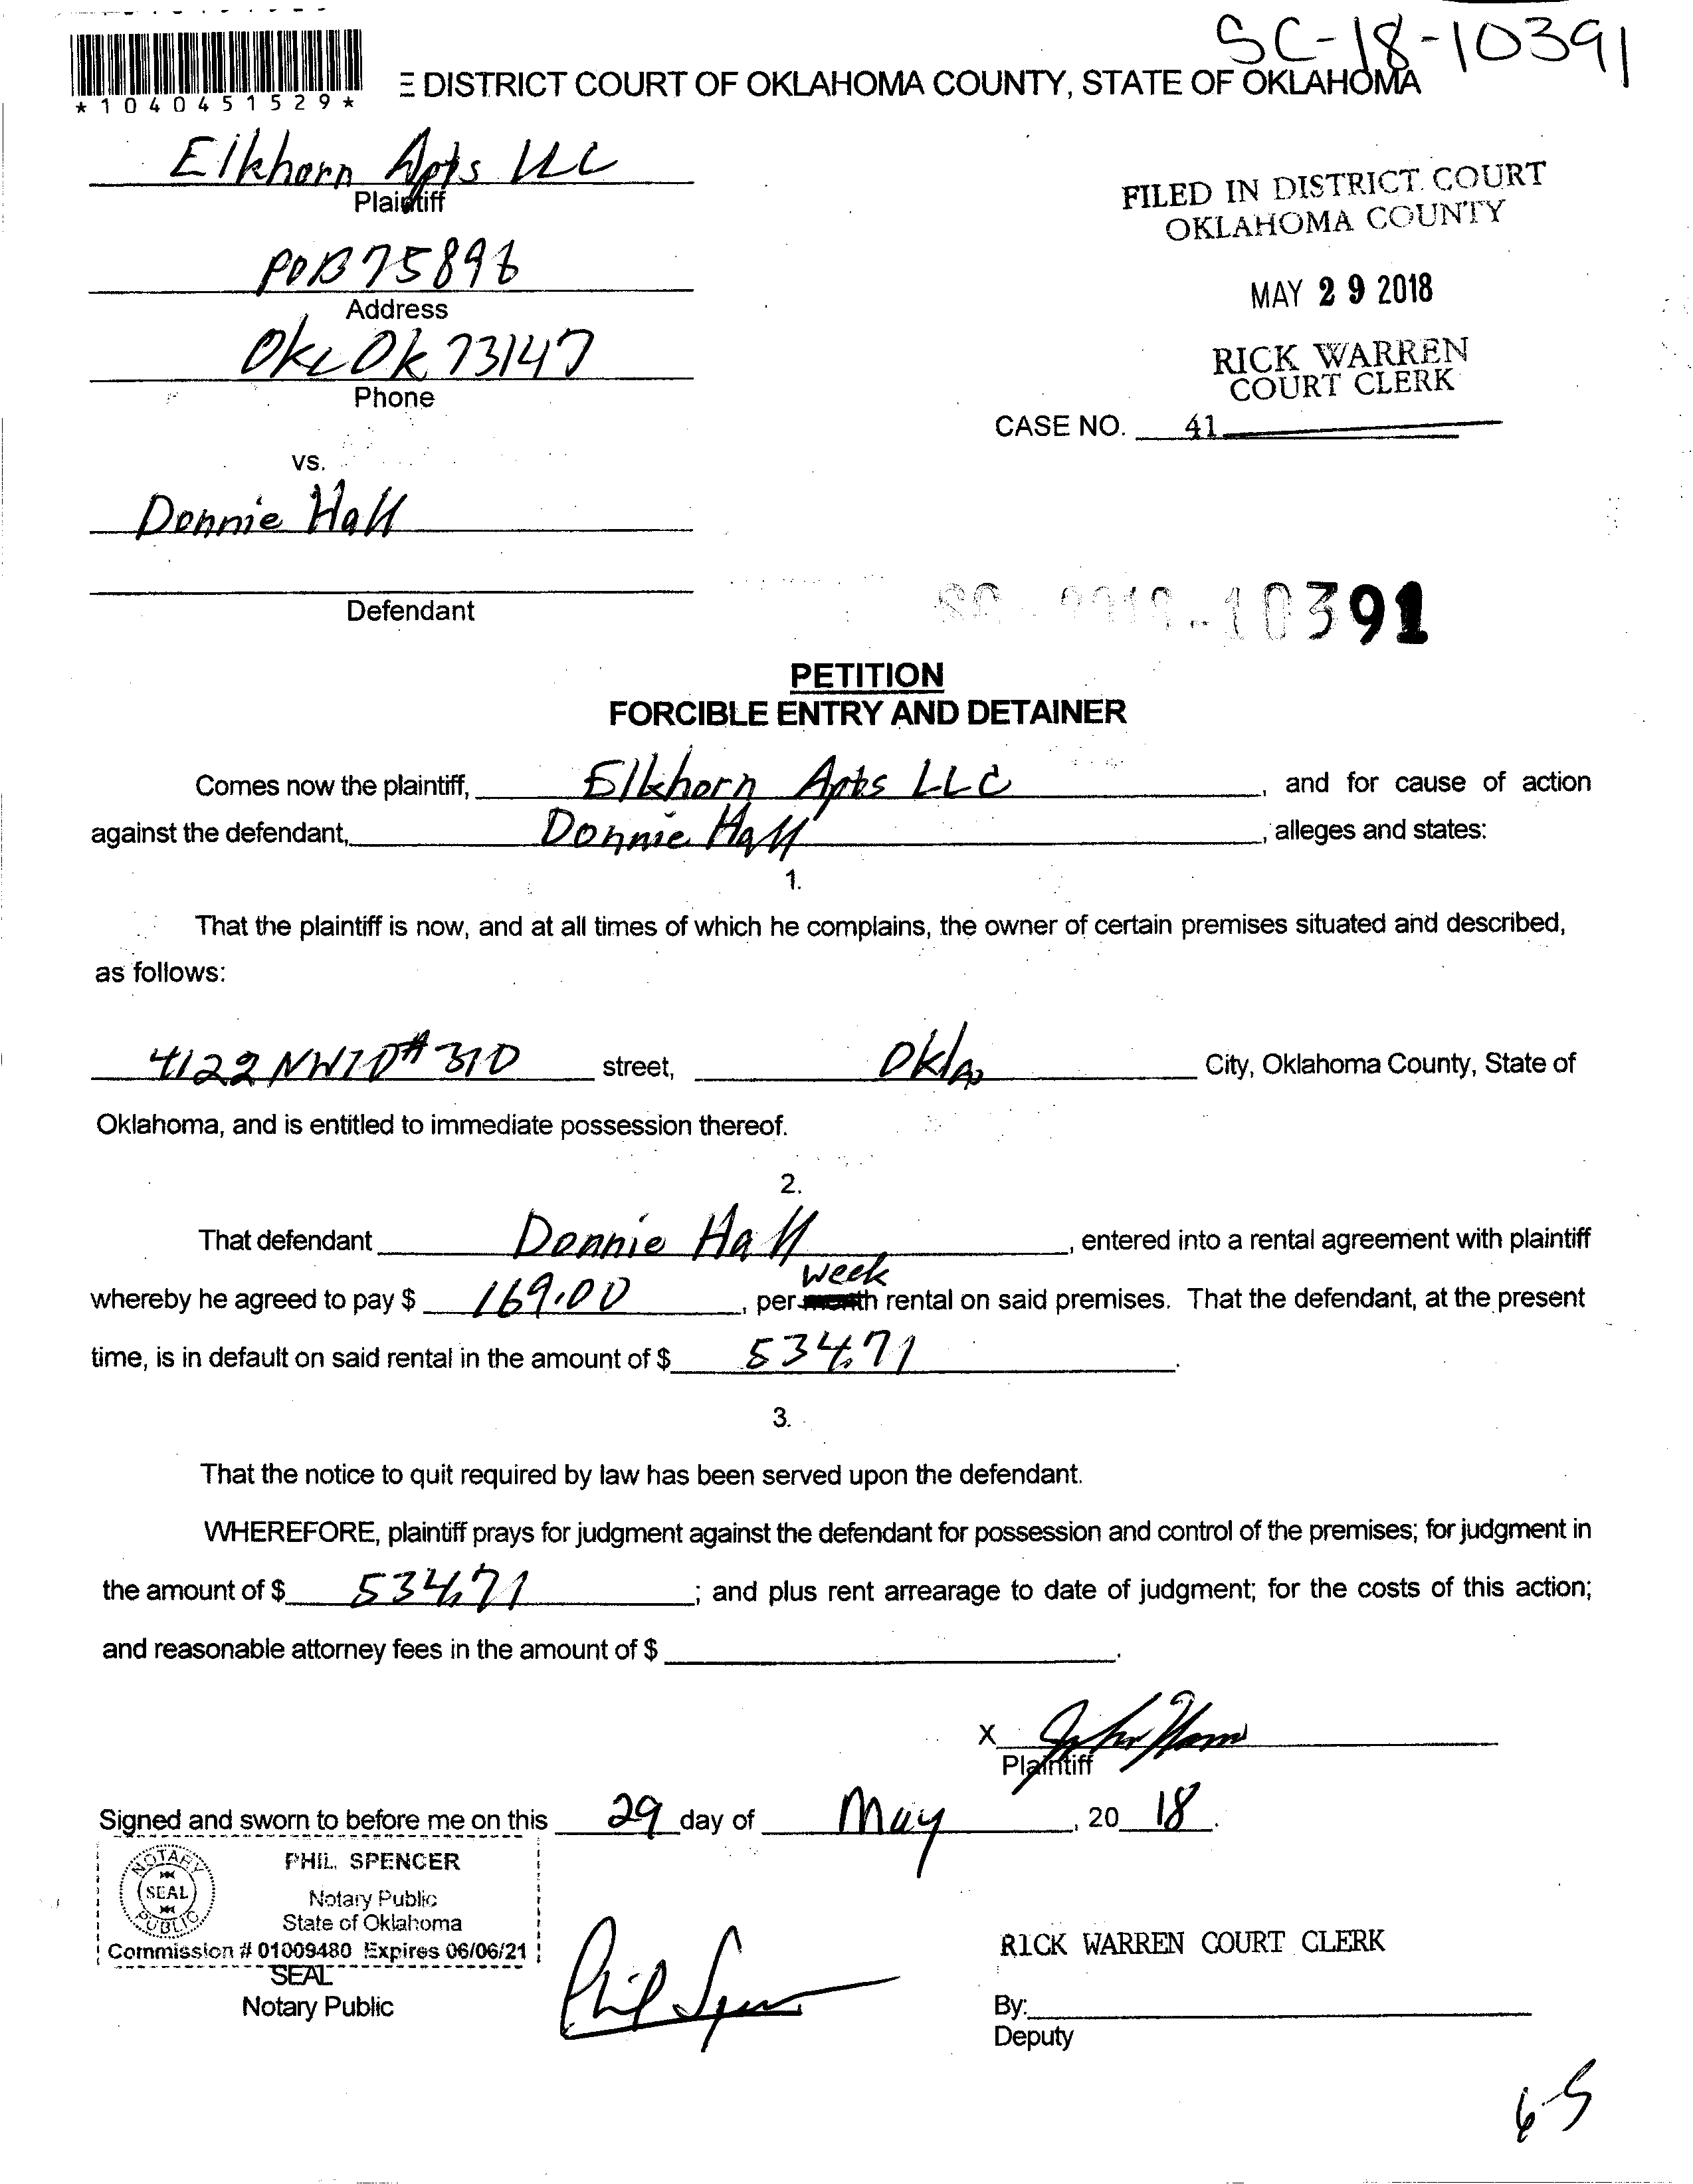 SC-18-10391
*1040451529*
E DISTRICT COURT OF OKLAHOMA COUNTY, STATE OF OKLAHOMA
Elkhorn Apts LLC
Plaintiff
FILED IN DISTRICT COURT
OKLAHOMA COUNTY
POB 75896
Address
MAY 29 2018
Okc Ok 73147
Phone
RICK WARREN
COURT CLERK
CASE NO. 41
vs.
Donnie Hall
Defendant
SC-2018-10391
PETITION
FORCIBLE ENTRY AND DETAINER
Comes now the plaintiff, Elkhorn Apts LLC, and for cause of action
against the defendant, Donnie Hall, alleges and states:
1.
That the plaintiff is now, and at all times of which he complains, the owner of certain premises situated and described,
as follows:
4122 NW10 #310 street, Okla City, Oklahoma County, State of
Oklahoma, and is entitled to immediate possession thereof.
2.
That defendant Donnie Hall, entered into a rental agreement with plaintiff
week
whereby he agreed to pay $ 169.00, per month rental on said premises. That the defendant, at the present
time, is in default on said rental in the amount of $ 534.71.
3.
That the notice to quit required by law has been served upon the defendant.
WHEREFORE, plaintiff prays for judgment against the defendant for possession and control of the premises; for judgment in
the amount of $ 534.71; and plus rent arrearage to date of judgment; for the costs of this action;
and reasonable attorney fees in the amount of $ .
X
Plaintiff
Signed and sworn to before me on this 29 day of May, 20 18.
NOTARY PUBLIC
SEAL
PHIL SPENCER
Notary Public
State of Oklahoma
Commission # 01009480 Expires 06/06/21
SEAL
Notary Public
Phil Spencer
RICK WARREN COURT CLERK
By:
Deputy
6-5